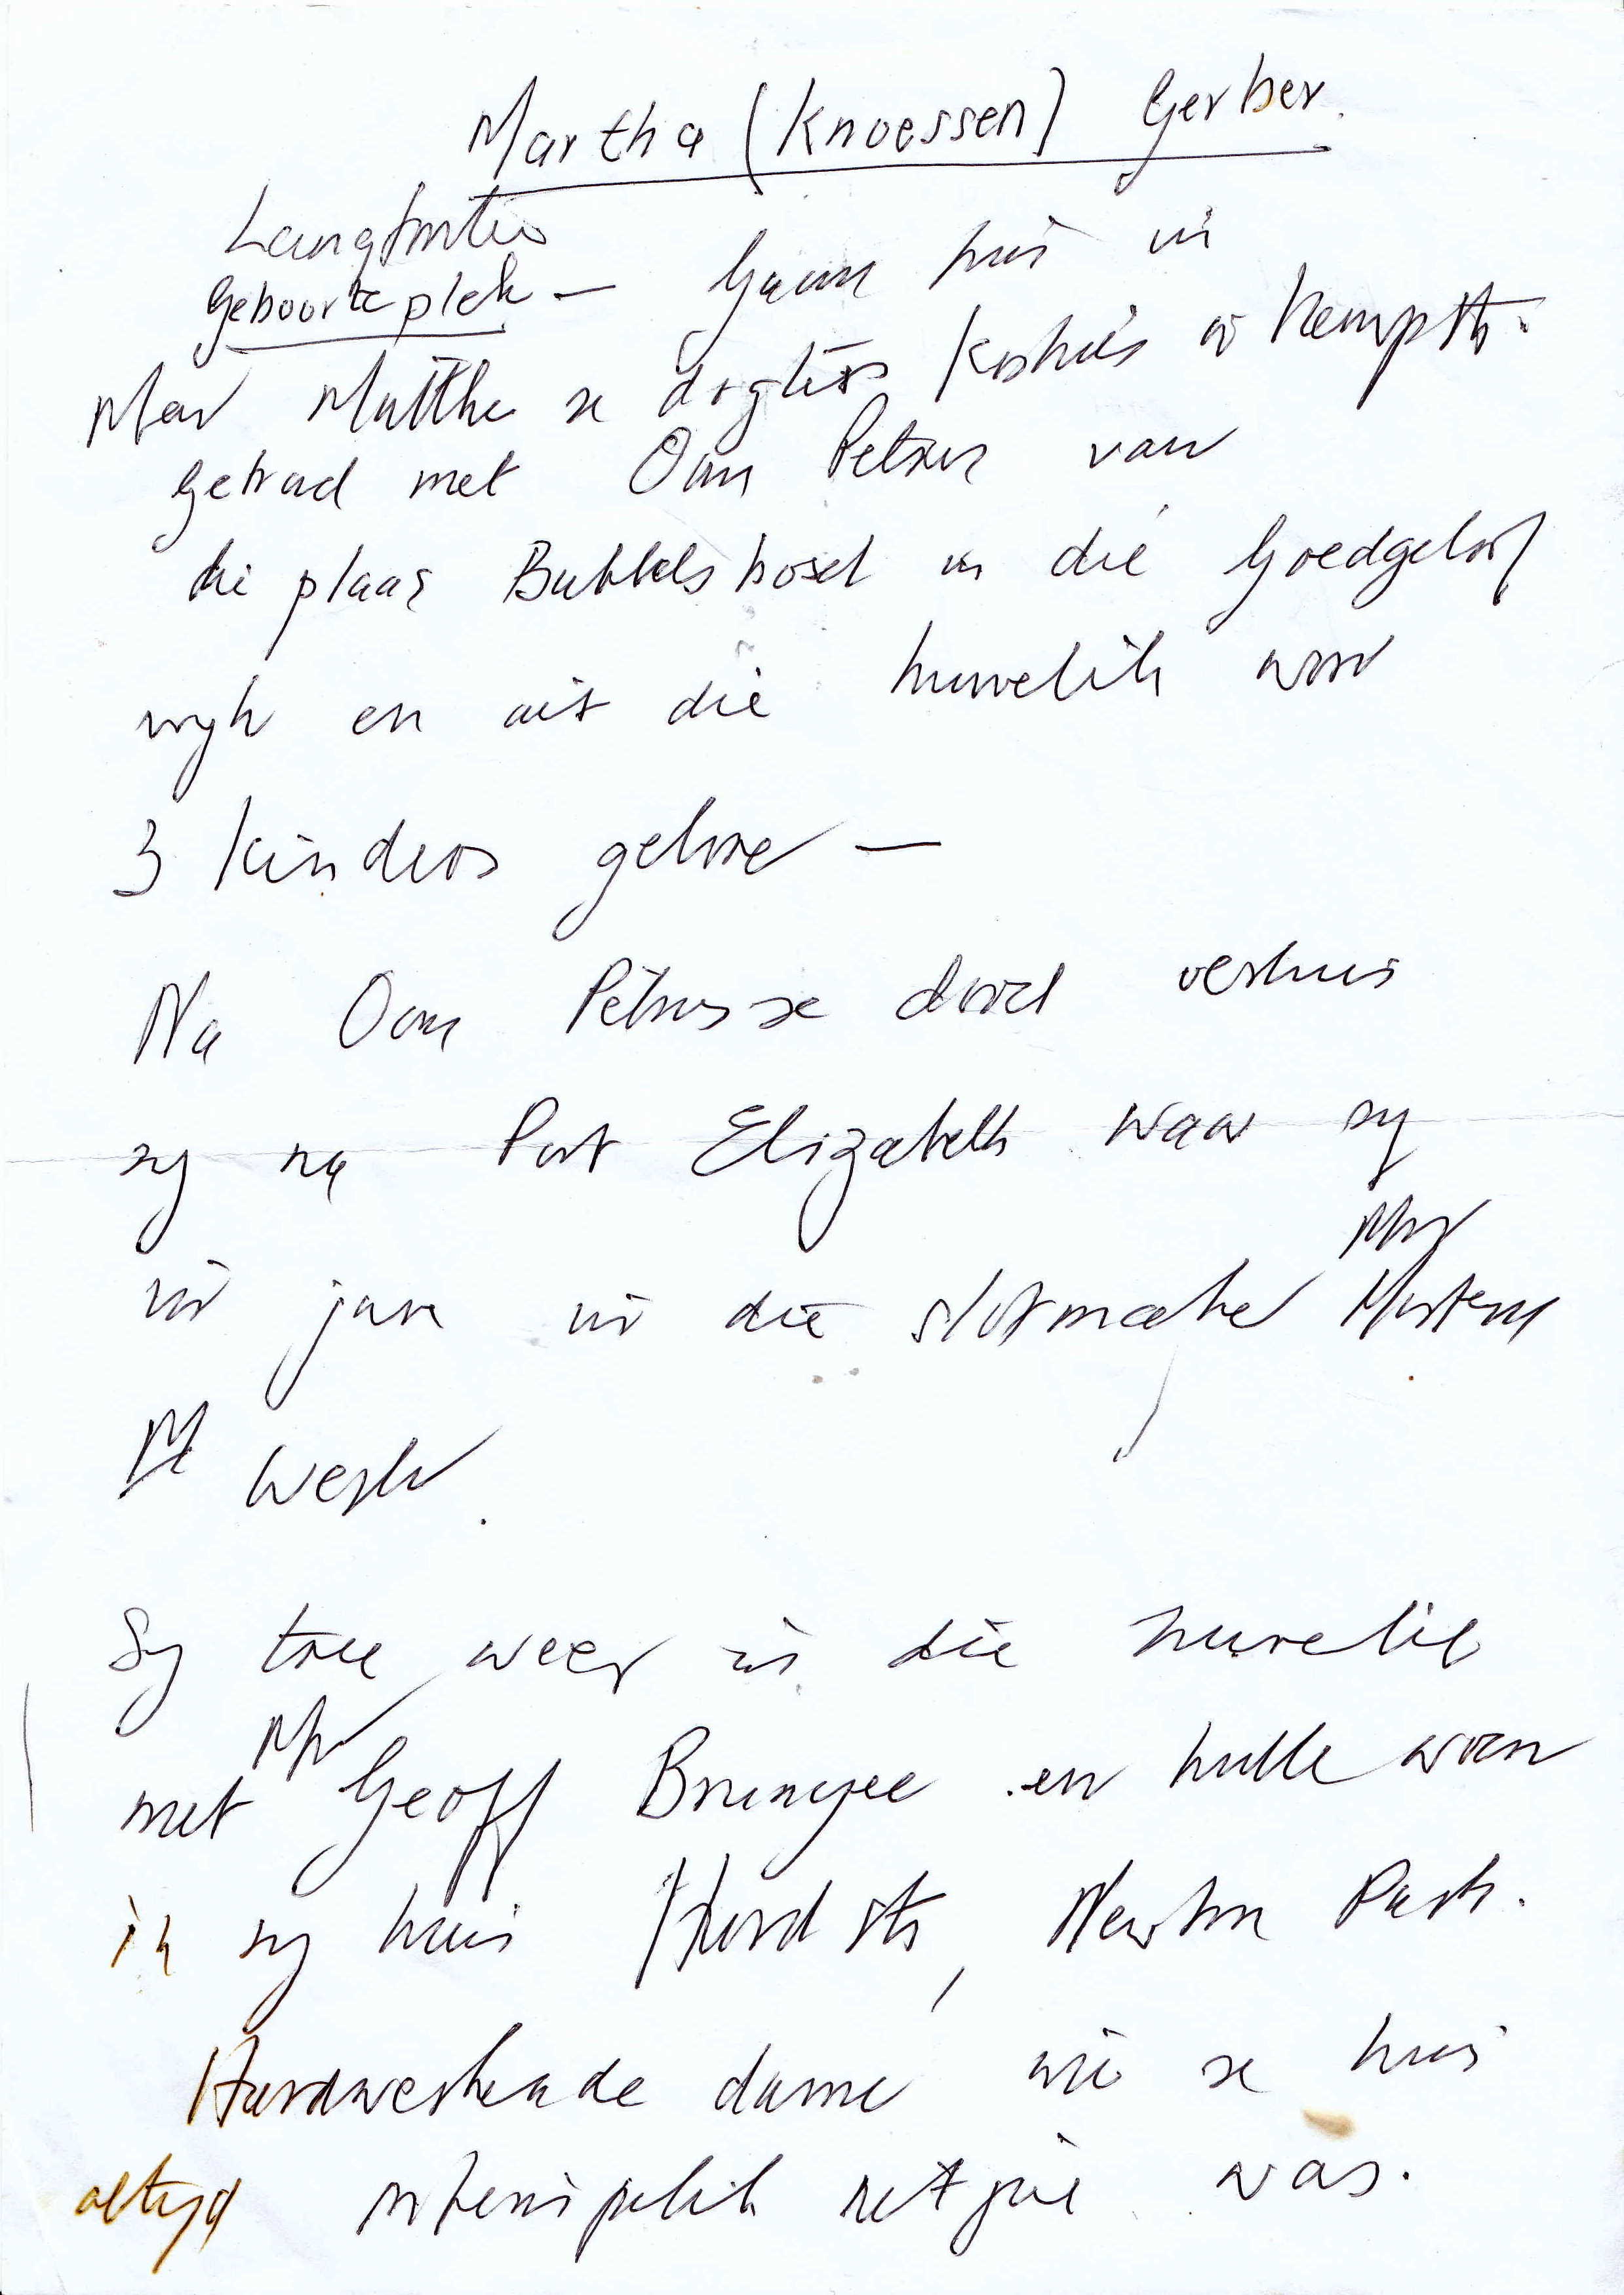 Martha (Knoessen) Gerber.
Langfontein
Geboorteplek — Gaan huis in
Mev Matthe se dogters Koshuis in
Getroud met Oom Petrus van
die plaas Bubbelsbosch in die Goedgeloof
wyk en uit die huwelik word
3 kinders gebore —
Na Oom Petrus se dood verhuis
sy na Port Elizabeth waar sy
vir jare in die slotmaker Mnr
Mostert
PE werk.
Sy tree weer in die huwelik
met Mnr Geoff en hulle woon
in sy huis Hurd str, Newton Park.
Hardwerkende dame wie se huis
altyd netjie was.